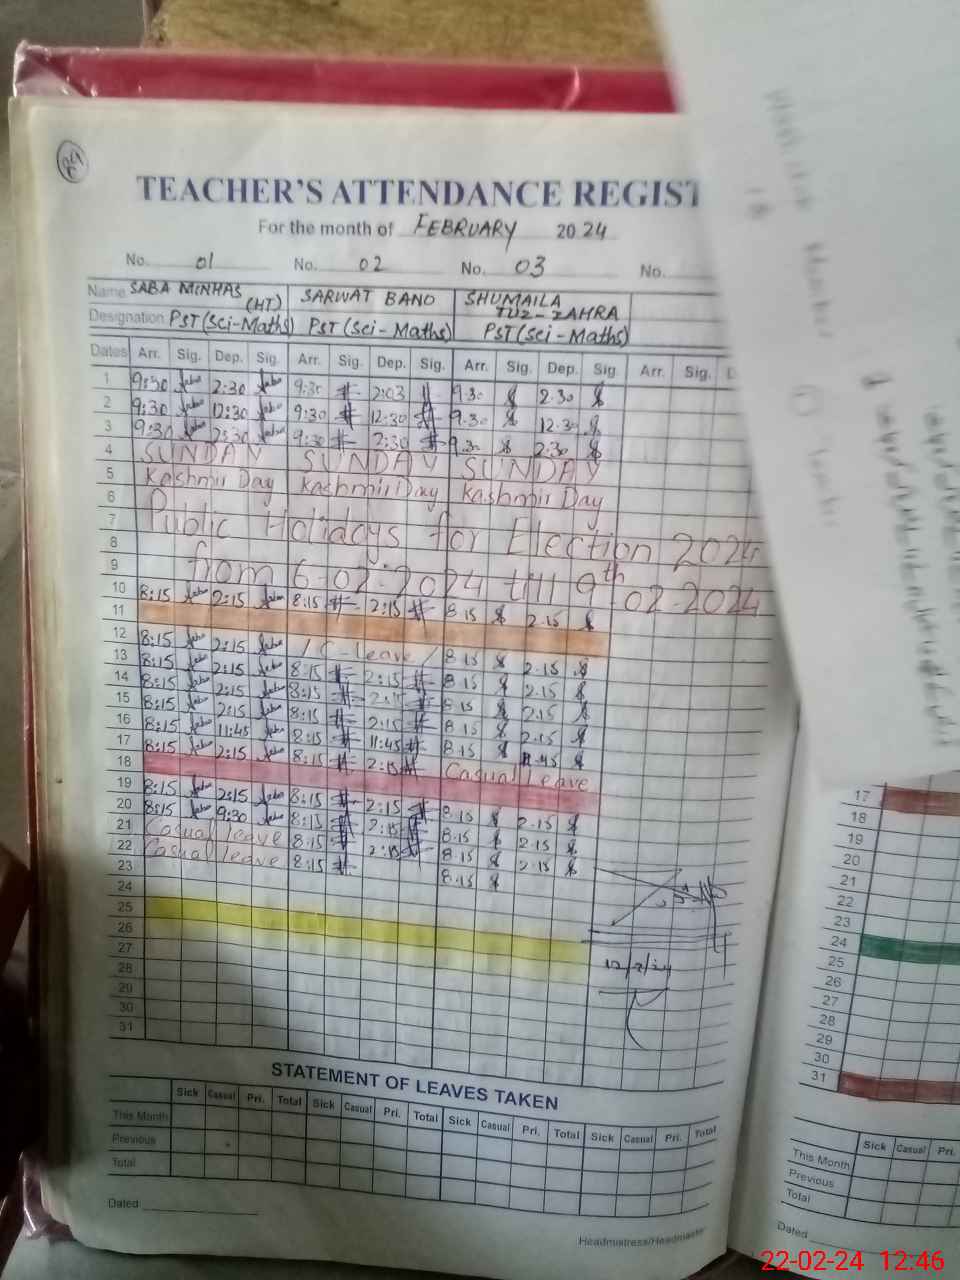 TEACHER'S ATTENDANCE REGIST
For the month of FEBRUARY 2024
No. 01 No. 02 No. 03 No.
Name SABA MINHAS (HT) SARWAT BANO SHUMAILA TUZ-ZAHRA
Designation PST (Sci-Maths) PST (Sci-Maths) PST (Sci-Maths)
Dates Arr. Sig. Dep. Sig. Arr. Sig. Dep. Sig. Arr. Sig. Dep. Sig. Arr. Sig. D
1 9:30 2:30 9:30 2:03 9.30 2.30
2 9:30 12:30 9:30 12:30 9.30 12.30
3 9:30 2:30 9:30 2:30 9.30 2.30
4 SUNDAY SUNDAY SUNDAY
5 Kashmir Day Kashmir Day Kashmir Day
6
7 Public Holidays for Election 2024
8
9 from 6-02-2024 till 9th -02-2024
10 8:15 2:15 8:15 2:15 8.15 2.15
11
12 8:15 2:15 C-leave 8.15 2.15
13 8:15 2:15 8:15 2:15 8.15 2.15
14 8:15 2:15 8:15 2:15 8.15 2.15
15 8:15 2:15 8:15 2:15 8.15 2.15
16 8:15 11:45 8:15 11:45 8.15 11.45
17 8:15 2:15 8:15 2:15 Casual Leave
18
19 8:15 2:15 8:15 2:15 8.15 2.15
20 8:15 9:30 8:15 2:15 8.15 2.15
21 Casual leave 8:15 2:15 8.15 2.15
22 Casual leave 8:15 8.15
23
24
25
26
27
28
29
30
31
12/2/24
STATEMENT OF LEAVES TAKEN
Sick Casual Pri. Total Sick Casual Pri. Total Sick Casual Pri. Total Sick Casual Pri. Total
This Month
Previous
Total
Dated
Headmistress/Headmaster
17
18
19
20
21
22
23
24
25
26
27
28
29
30
31
Sick Casual Pri.
This Month
Previous
Total
Dated
22-02-24 12:46